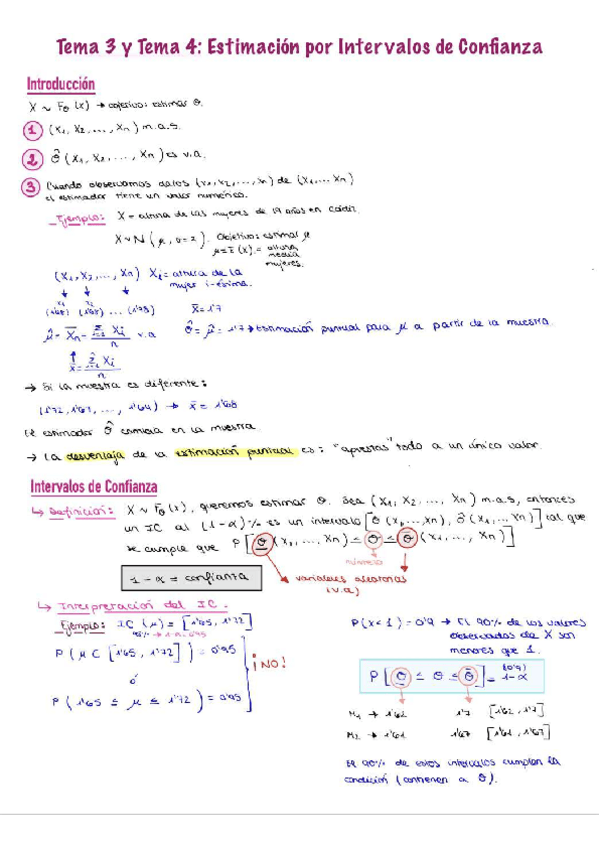 Tema 3 y Tema 4: Estimación por Intervalos de Confianza
Introducción
X ~ Fθ (x) → objetivo: estimar θ.
1 (X1, X2, ..., Xn) m.a.s.
2 θ̂ (X1, X2, ..., Xn) es v.a.
3 Cuando observamos datos (x1, x2, ..., xn) de (X1, ... Xn)
el estimador tiene un valor numérico.
Ejemplo: X = altura de las mujeres de 19 años en Cádiz.
X ~ N ( μ, σ=2 ). Objetivo: estimar μ
μ = E (X) = altura
media
mujeres.
(X1, X2, ..., Xn) Xi = altura de la
mujer i-ésima.
x1 x2
(1'65) (1'58) ... (1'75) x̄ = 1'7
μ̂ = X̄n = Σ Xi / n v.a θ̂ = μ̂ = 1'7 → Estimación puntual para μ a partir de la muestra.
x̄ = Σ Xi / n
→ Si la muestra es diferente:
(1'72, 1'67, ..., 1'64) → x̄ = 1'68
El estimador θ̂ cambia en la muestra.
→ La desventaja de la estimación puntual es: "apuestas" todo a un único valor.
Intervalos de Confianza
↳ Definición: X ~ Fθ (x), queremos estimar θ. Sea (X1, X2, ..., Xn) m.a.s, entonces
un IC al (1-α)% es un intervalo [θ (X1, ..., Xn), θ̄ (X1, ... Xn)] tal que
se cumple que P [θ (X1, ..., Xn) ≤ θ ≤ θ̄ (X1, ..., Xn)]
número
1 - α = confianza
variables aleatorias
(v.a)
↳ Interpretación del IC.
Ejemplo: IC (μ) = [1'65, 1'72]
95% → 1-α=0'95
P ( μ ⊂ [1'65, 1'72] ) = 0'95
ó
P ( 1'65 ≤ μ ≤ 1'72 ) = 0'95
¡NO!
P(X<1) = 0'9 → El 90% de los valores
observados de X son
menores que 1.
P [ θ ≤ θ ≤ θ̄ ] = 1-α
(0'9)
M1 → 1'62 1'7 [1'62, 1'7]
M2 → 1'61 1'67 [1'61, 1'67]
El 90% de estos intervalos cumplen la
condición (contienen a θ).